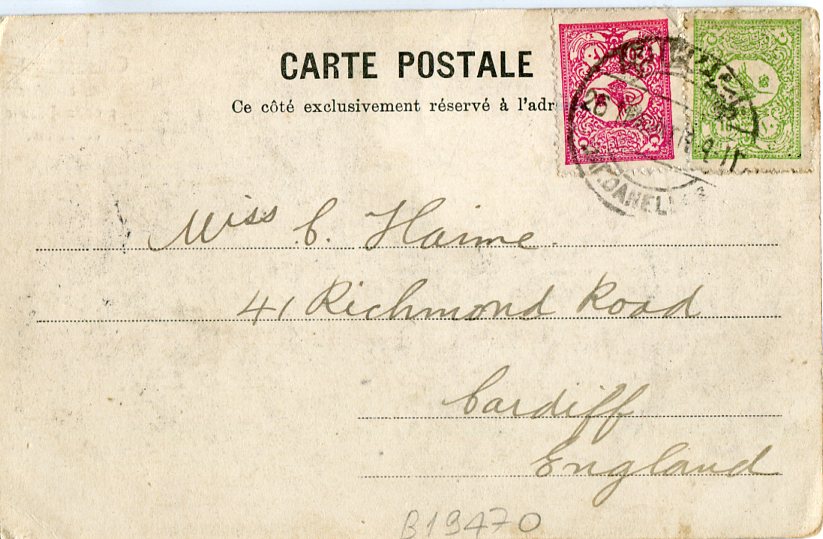 CARTE POSTALE
Ce côté exclusivement réservé à l'adre
26
DARDANELLES
Miss C. Haime.
41 Richmond Road
Cardiff
England
B19470